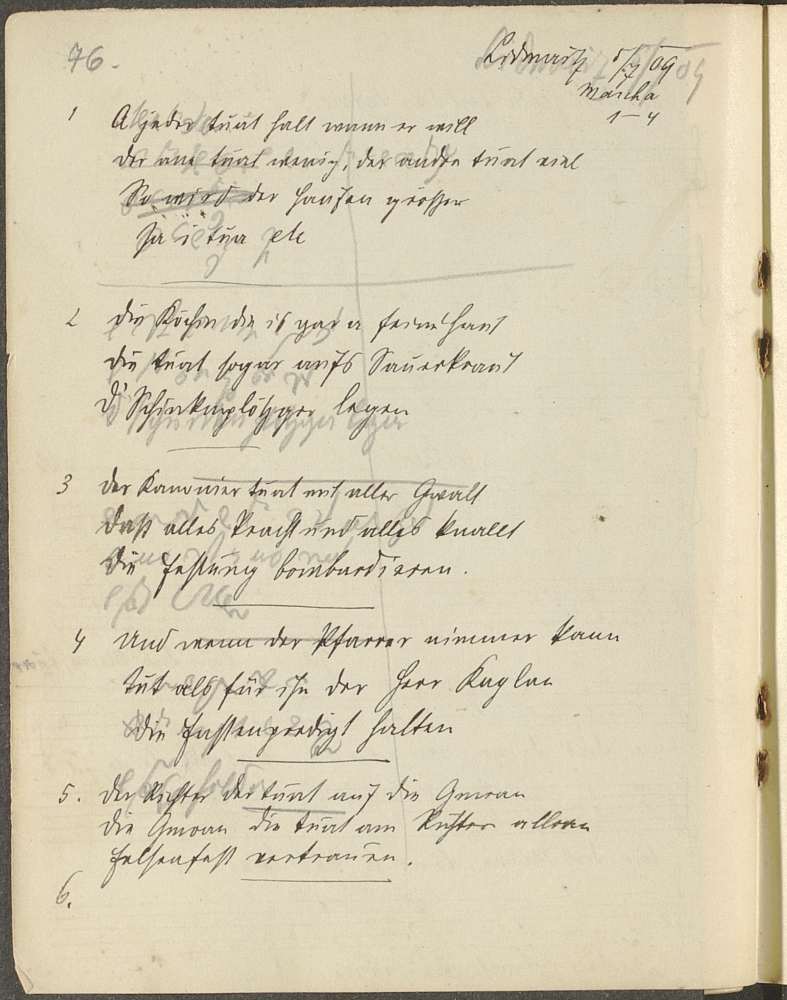 76.
5/7 09
Mascha
1–4
1 A jeder tuat halt wann er will
der ane tuat wenig, der andre tuat viel
So wird der Haufen grösser
ja i tua etc
2 die Köchin die is gar a feine Haut
die tuat sogar aufs Sauerkraut
d' Schinkenplötzger legen
3 der Kanonier tuat mit aller Gwalt
dass alles kracht und alles knallt
die Festung bombardieren.
4 Und wenn der Pfarrer nimmer kann
tut als für ihn der Herr Kaplan
die Fastenpredigt halten
5. der Richter der tuat auf die Gmoan
die Gmoan die tuat am Richter alloan
felsenfest vertrauen.
6.